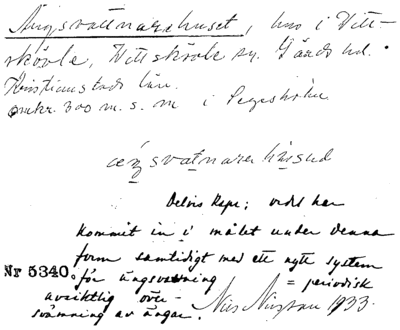 Ängsvattnarehuset, hus i Vitt-
skövle, Vittskövle sn. Gärds hd.
Kristianstads län.
omkr. 300 m. s. om
Delvis Rspr; ordet har
kommit in i målet under denna
form samtidigt med ett nytt system
Nr 5340. för ängsvattning = periodisk
avsiktlig över-
svämning av ängar. Nils 1933.